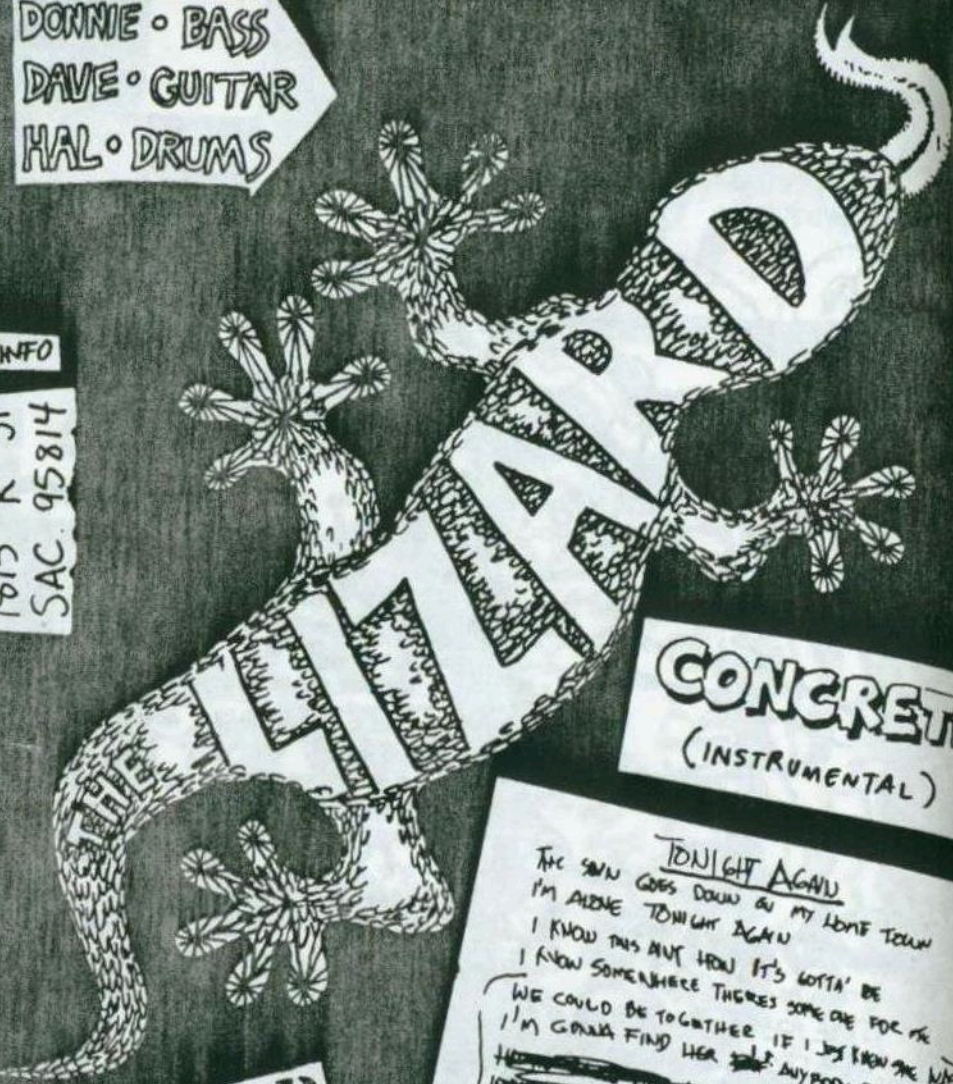 DONNIE • BASS
DAVE • GUITAR
HAL • DRUMS
INFO
1815 K ST
SAC. 95814
THE LIZARD
CONCRET
(INSTRUMENTAL)
TONIGHT AGAIN
THE SUN GOES DOWN ON MY HOME TOWN
I'M ALONE TONIGHT AGAIN
I KNOW THIS AINT HOW IT'S GOTTA' BE
I KNOW SOMEWHERE THERES SOME ONE FOR ME
WE COULD BE TOGETHER IF I JUST KNEW THE
I'M GONNA FIND HER